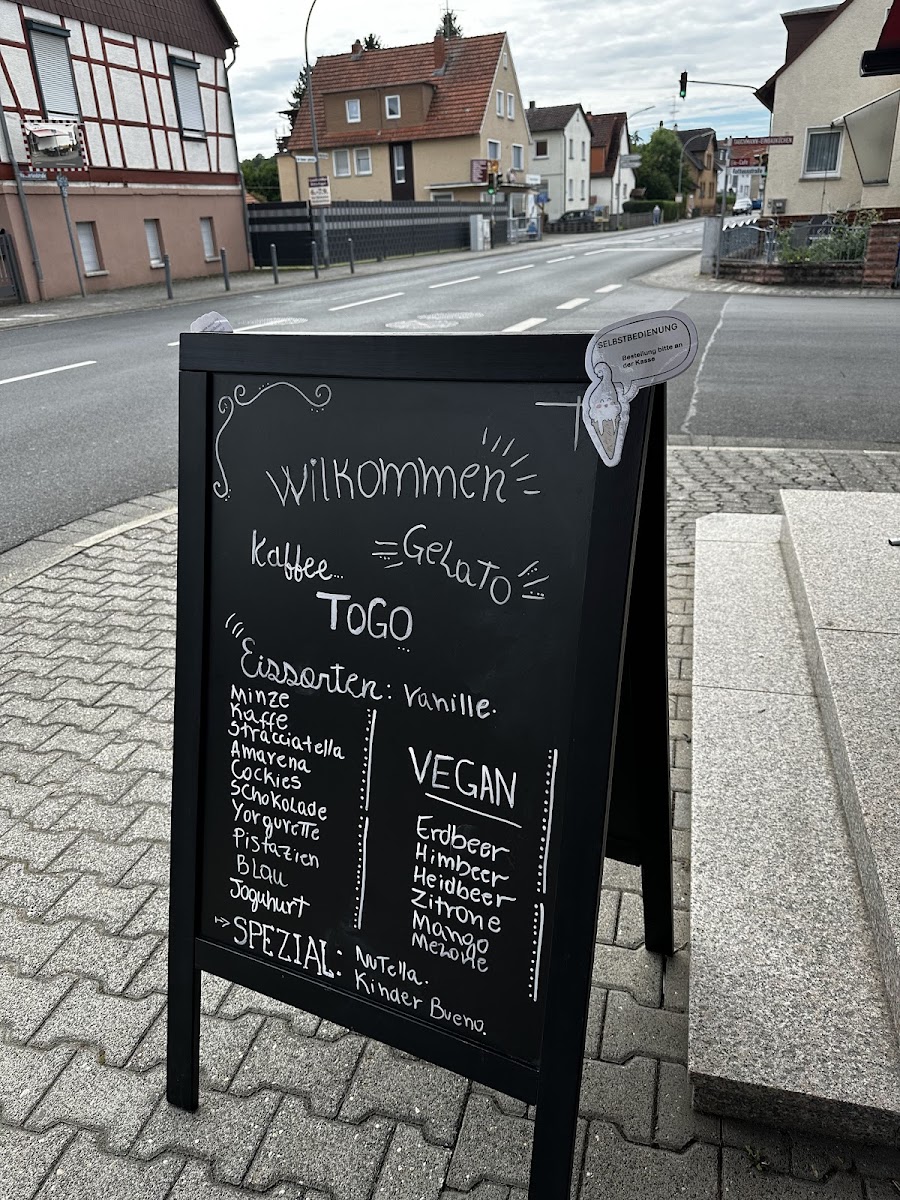 SELBSTBEDIENUNG
Bestellung bitte an
der Kasse
Wilkommen
Kaffee...
Gelato
ToGO
Eissorten: Vanille.
Minze
Kaffe
Stracciatella
Amarena
Cockies
Schokolade
Yorgurette
Pistazien
Blau
Joguhurt
VEGAN
Erdbeer
Himbeer
Heidbeer
Zitrone
Mango
Melone
SPEZIAL: Nutella.
Kinder Bueno.